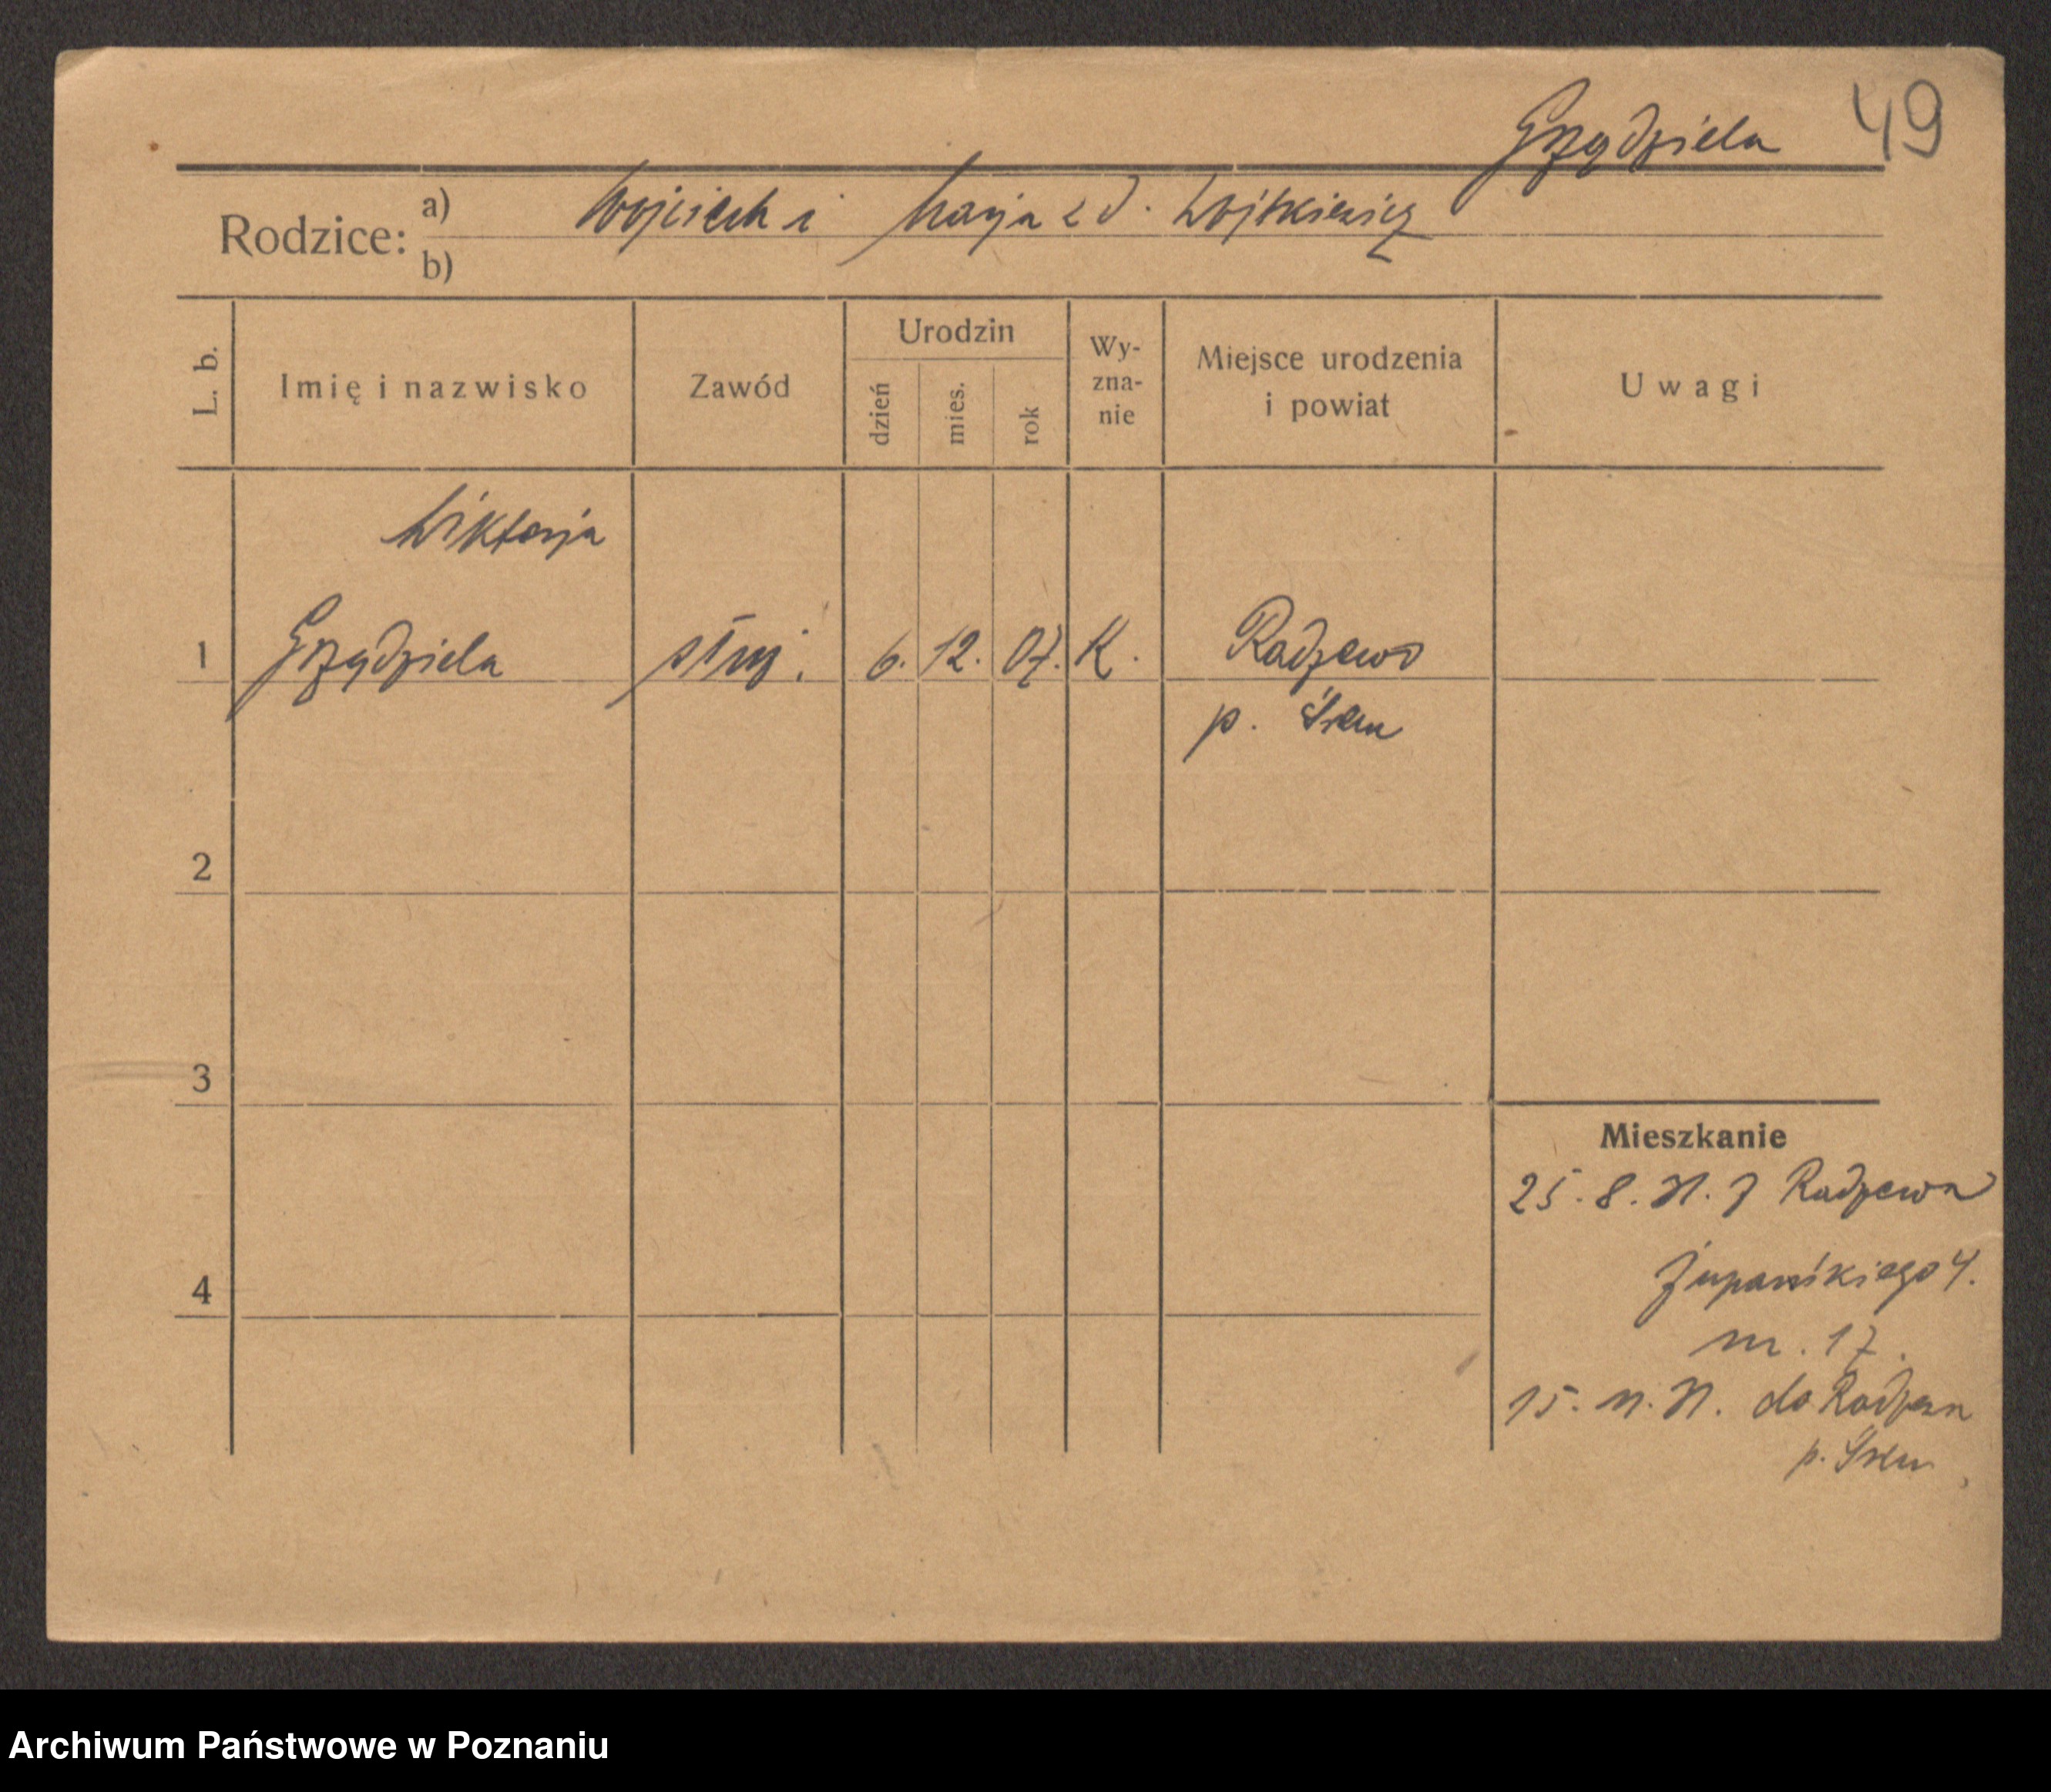 Grządziela 49
Rodzice: a) Wojciech i Marja z d. Wojtkiewicz
b)
L. b. Imię i nazwisko Zawód Urodzin dzień mies. rok Wyznanie Miejsce urodzenia i powiat Uwagi
Wiktorja
1 Grządziela służ. 6. 12. 07. K. Radzewo
p. Śrem
2
3
Mieszkanie
25. 8. z Radzewa
4 Żupańskiego 4.
m. 17.
15. do
p. Śrem
Archiwum Państwowe w Poznaniu